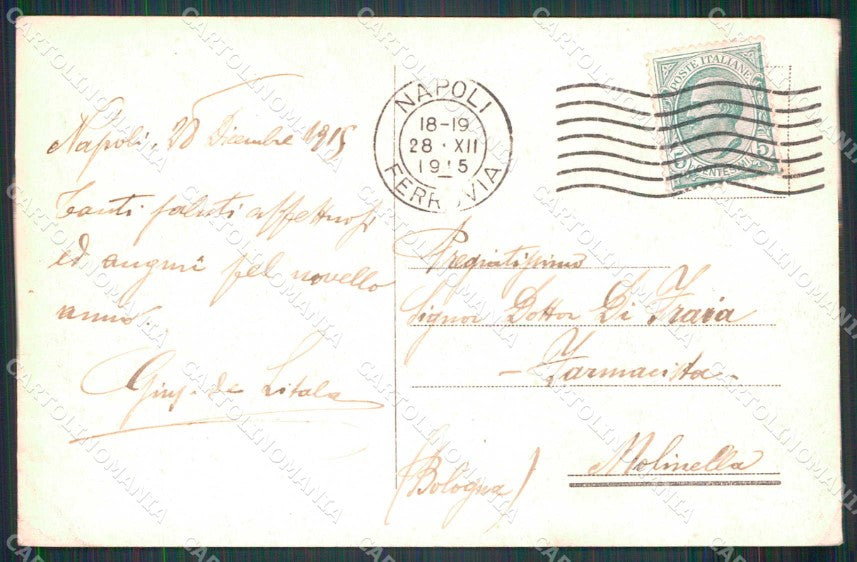 Napoli, 28 Dicembre 1915
Tanti saluti affettuosi
ed auguri pel novello
anno.
Gius. de Litala
NAPOLI
18-19
28 · XII
1915
FERROVIA
POSTE ITALIANE
5 CENTESIMI 5
Pregiatissimo
Signor Dottor Di Fraia
- Farmacista -
Molinella
(Bologna)
CARTOLINOMANIA